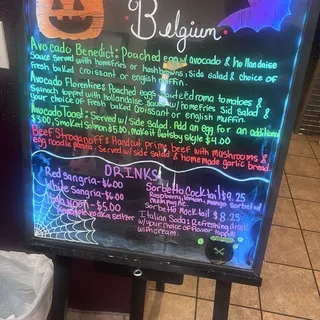 Belgium
Avocado Benedict: Poached egg w/ avocado & hollandaise
sauce served with homefries or hash browns, side salad & choice of
fresh baked croissant or english muffin.
Avocado Florentine: Poached eggs sauteed roma tomatoes &
spinach topped with hollandaise sauce w/ homefries side salad &
your choice of fresh baked croissant or english muffin.
Avocado Toast: Served w/ side salad. Add an egg for an additional
$3.00, Smoked salmon $5.00, make it Gatsby style $4.00
Beef Stroganoff: Handcut prime beef with mushrooms &
egg noodle pasta. Served w/ side salad & homemade garlic bread.
DRINKS
Red sangria-$6.00
White Sangria-$6.00
High noon-$5.00
vodka seltzer
Sorbetto Cocktail $9.25
Raspberry, lemon, mango sorbet w/
Sorbetto Mocktail $8.25
Italian Soda: Refreshing drink
w/ your choice of flavor topped
with cream.